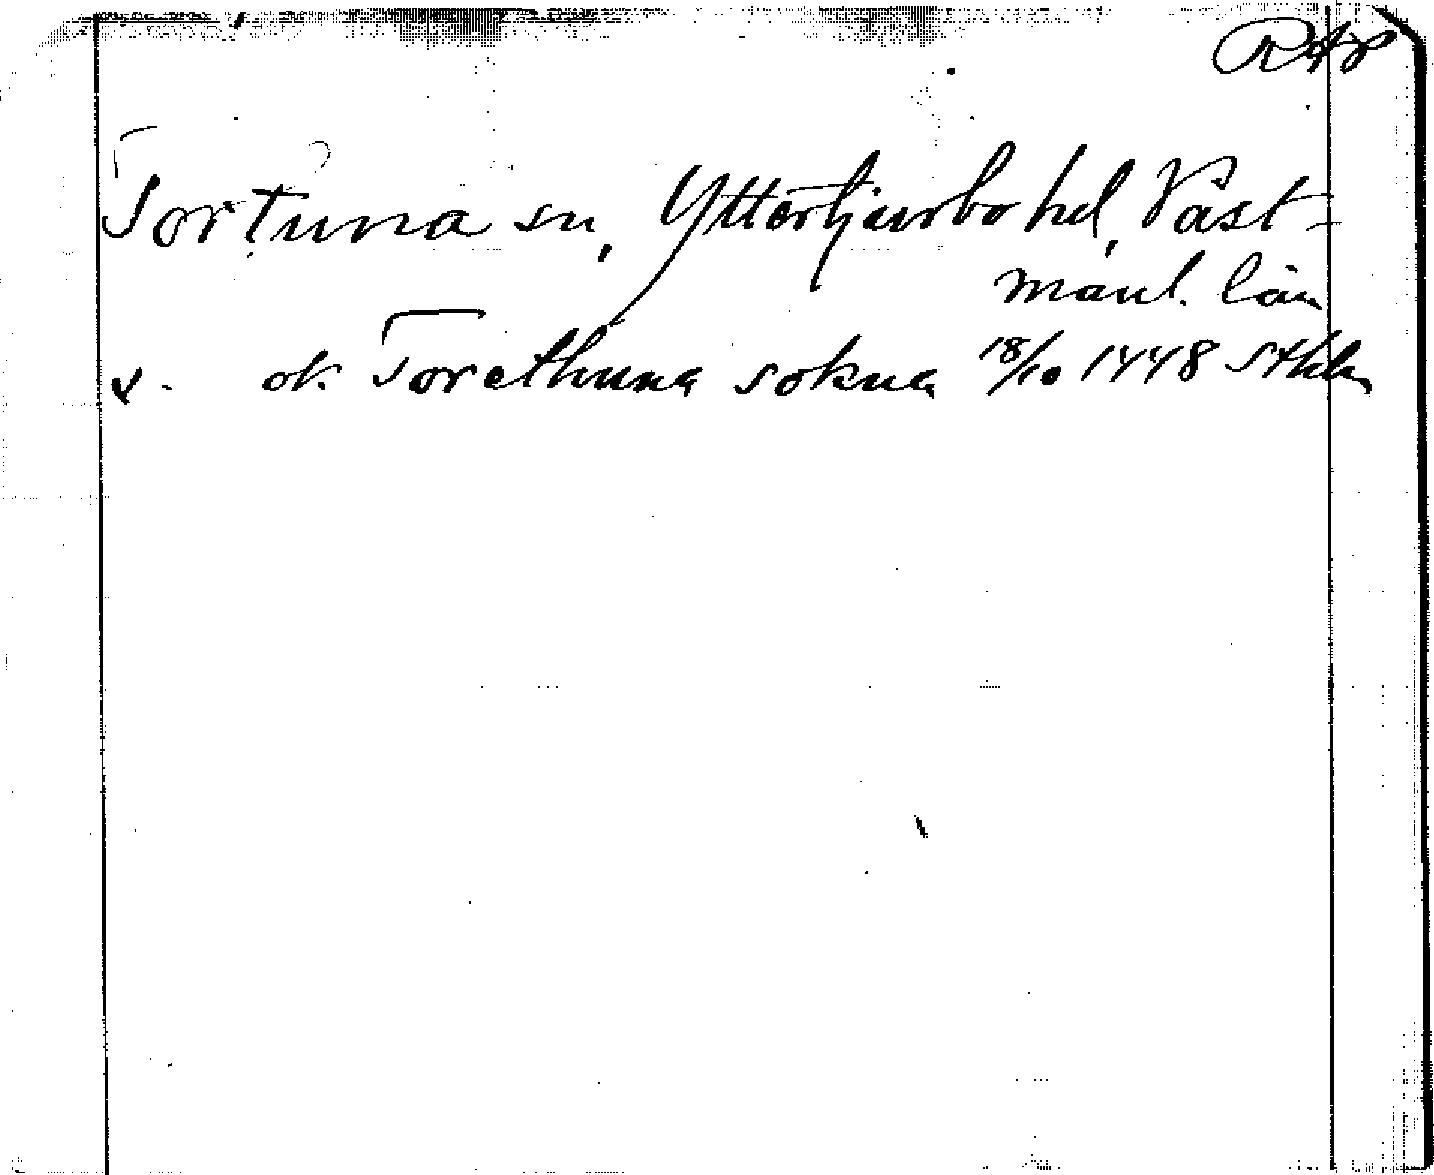 RAp
Tortuna sn, Yttertjurbo hd, Väst-
manl. län
v. ok Torethuna sokna 18/10 1448 Sthlm